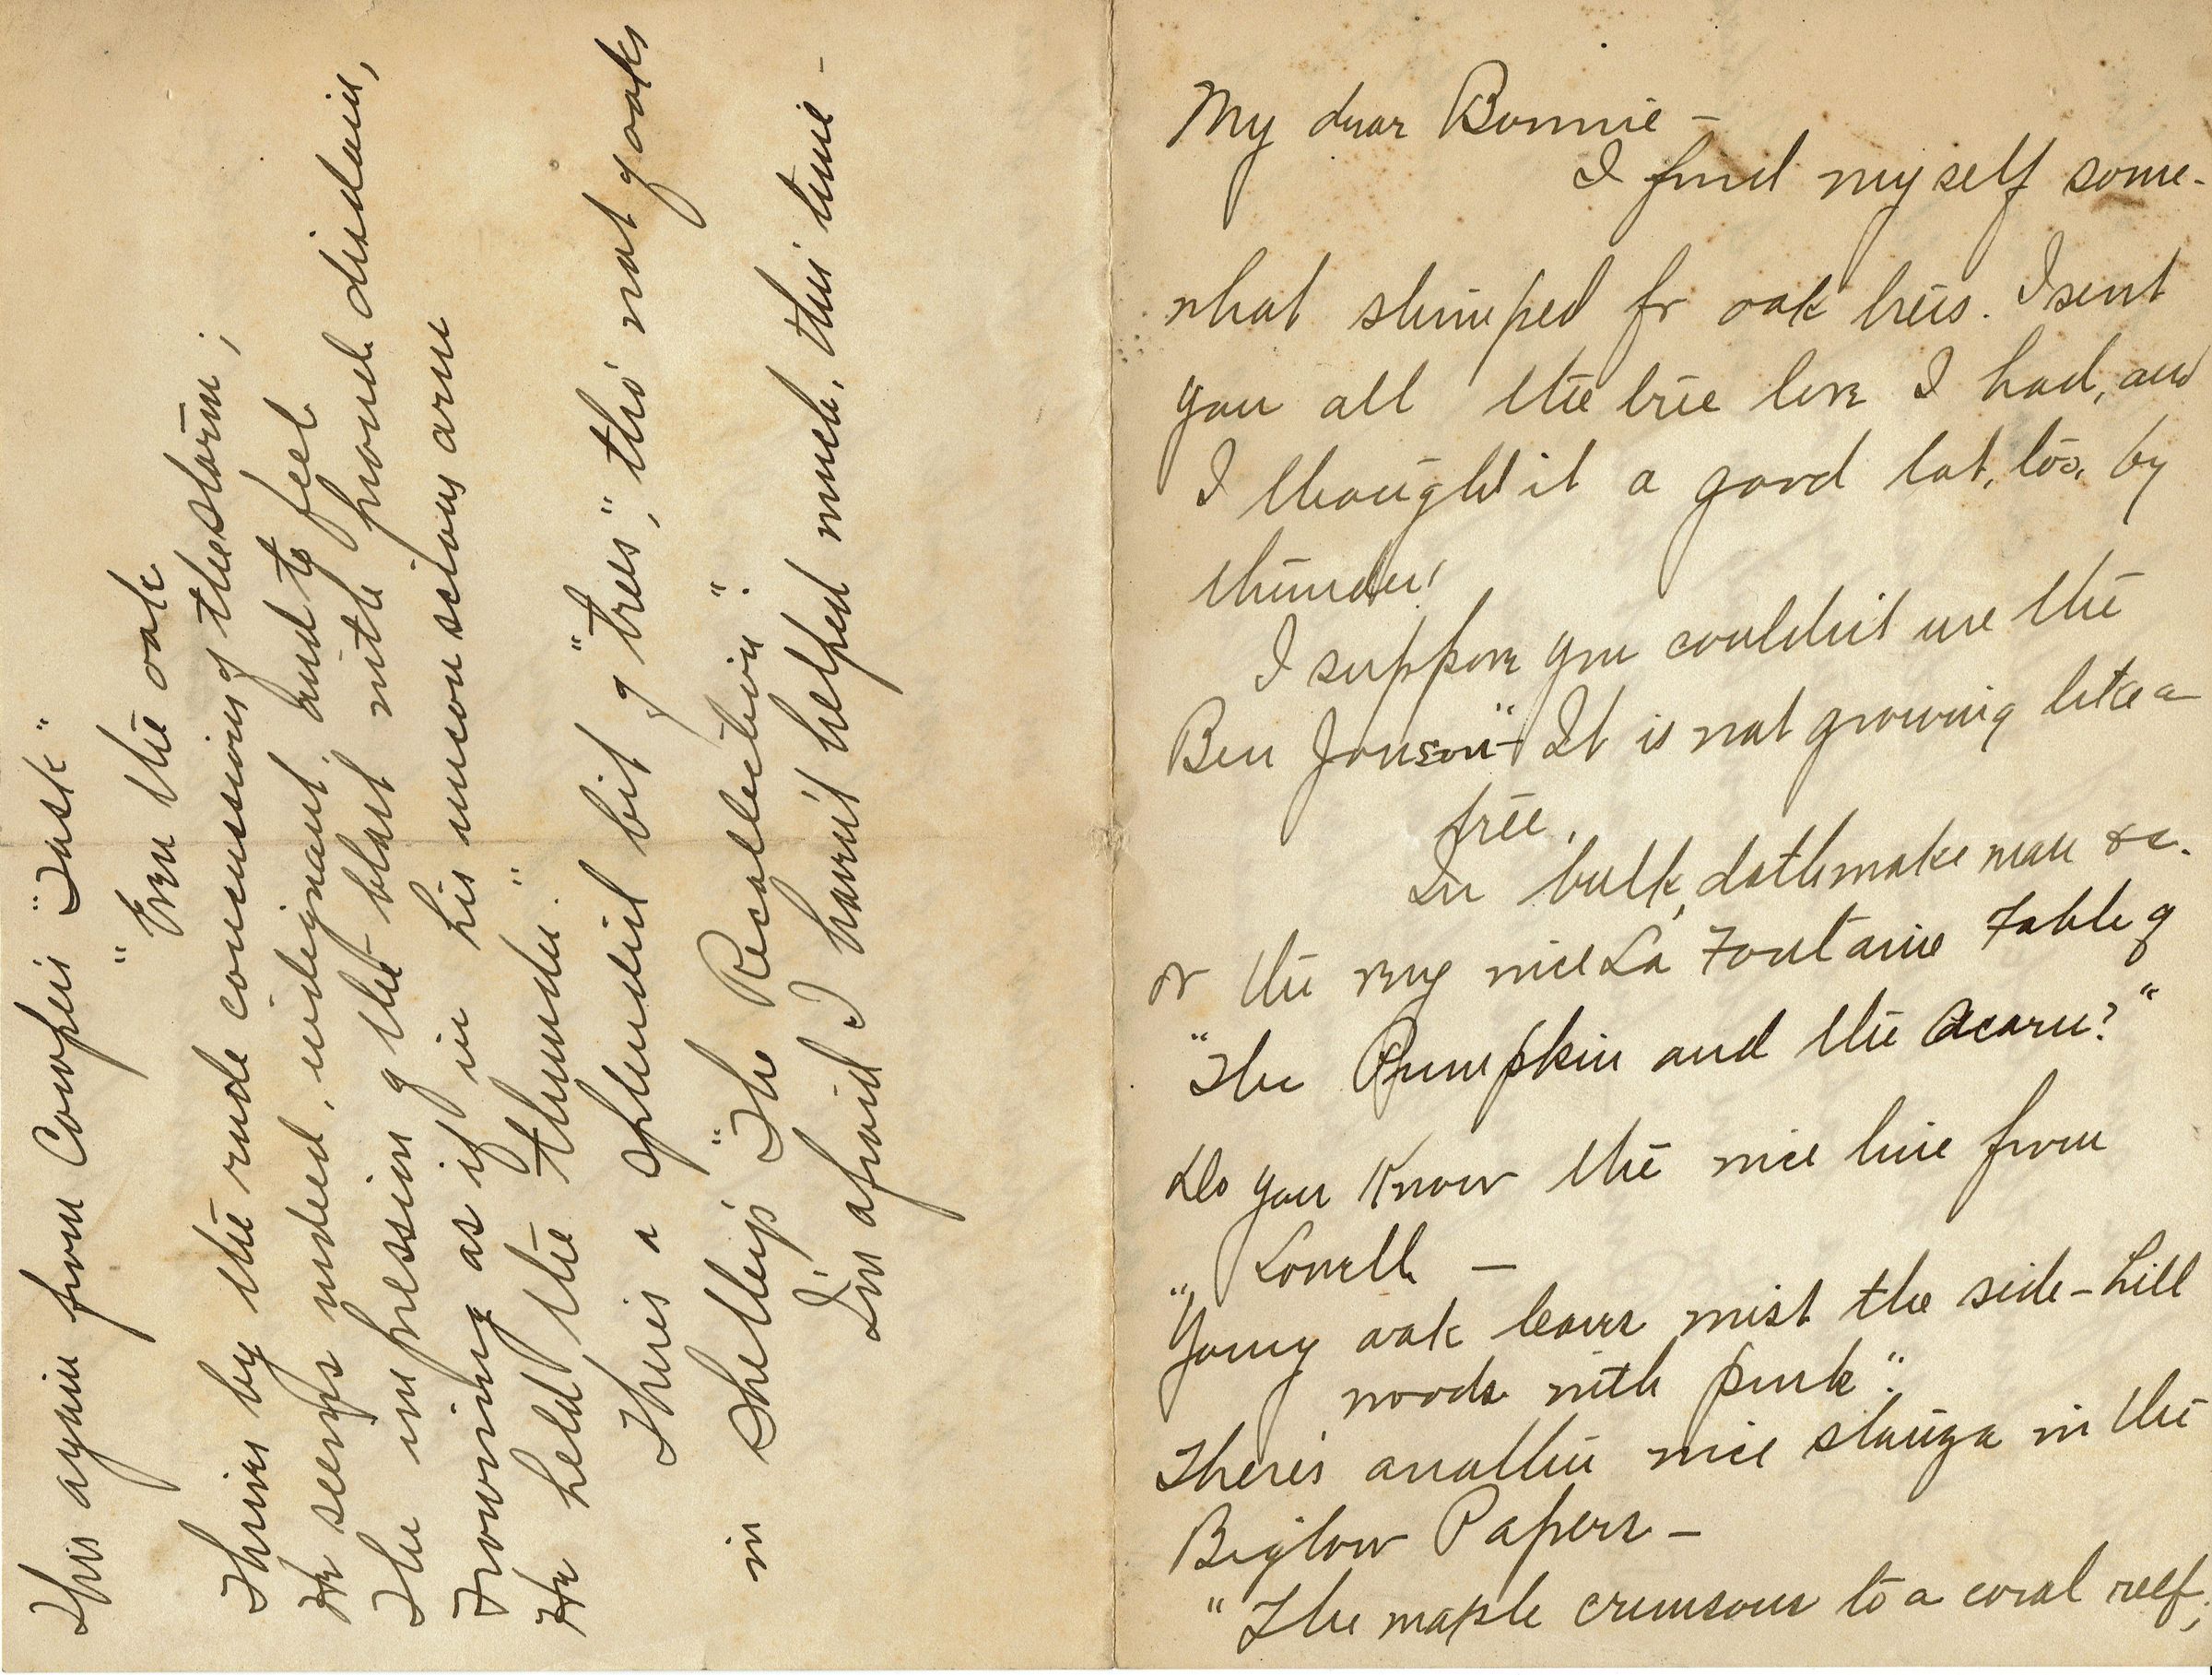 My dear Bonnie –
I find myself some-
what skimped fr oak trees. I sent
you all the tree lore I had, and
I thought it a good lot, too, by
thunder!
I suppose you couldn't use the
Ben Jonson – "It is not growing like a
tree,
In bulk, doth make man &c.
or the very nice La Fontaine Fable of
"The Pumpkin and the Acorn?"
Do you know the nice line from
Lowell –
"Young oak leaves mist the side-hill
woods with pink".
There's another nice stanza in the
Biglow Papers –
"The maple crimsons to a coral reef,
This again from Cowper's "Task"
"Even the oak
Thrives by the rude concussion of the storm;
He seems indeed, indignant, and to feel
The impression of the blast with proud disdain,
Frowning as if in his unconscious arm
He held the thunder."
There's a splendid bit of "trees," tho' not of oaks
in Shelley's "The Recollection".
I'm afraid I haven't helped much, this time –